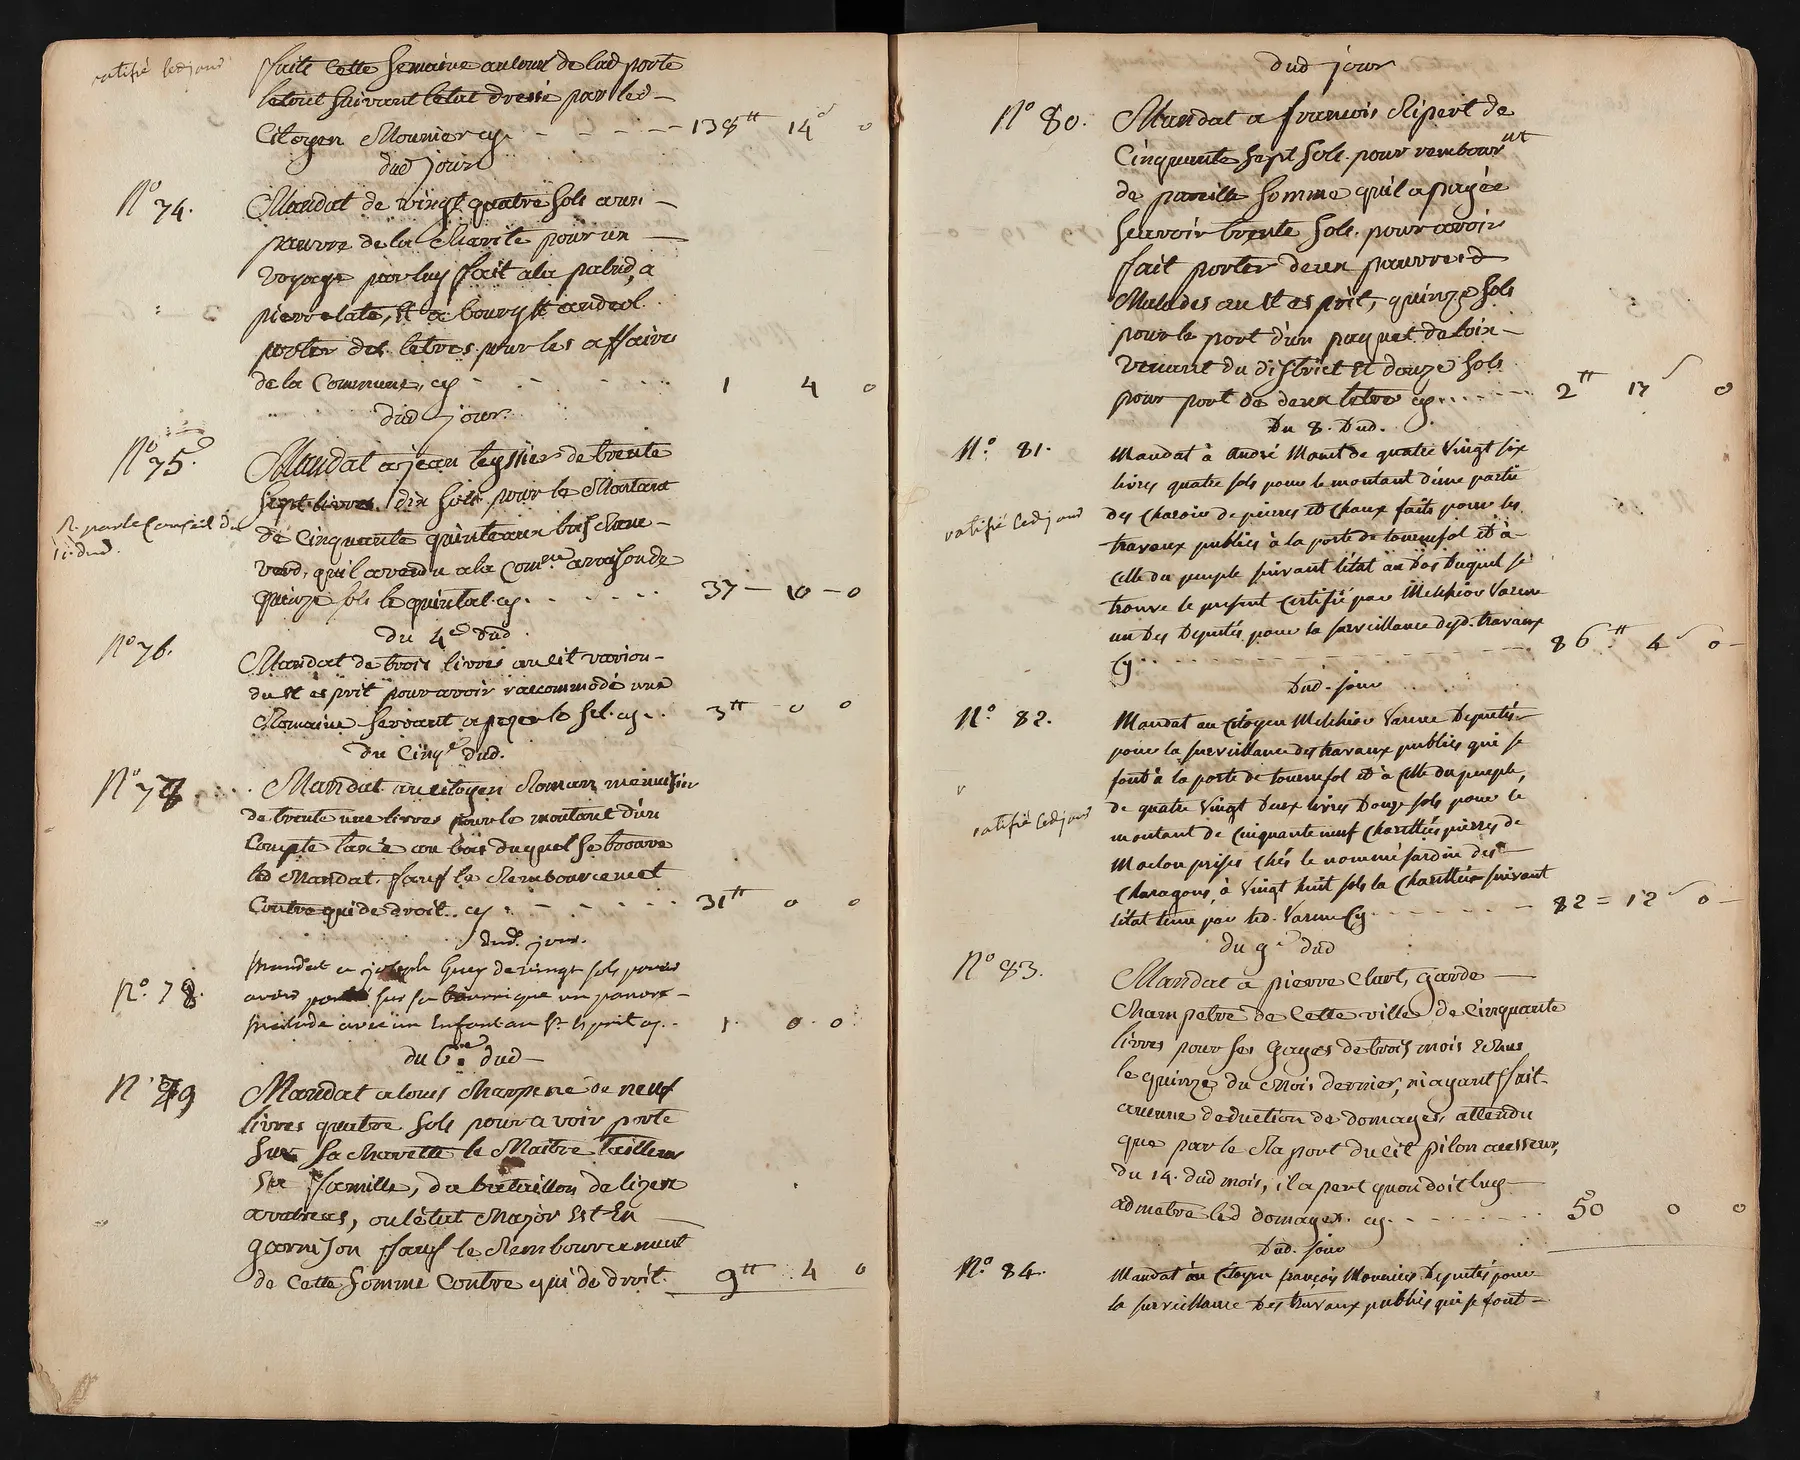 ratifié ledjour
faits cette semaine autour de lad porte
letout suivant letat dressé par led –
Citoyen Mounier cy - - - - - 138tt 14s 0
dud jour
No 74.
Mandat de vingt quatre sols a un –
pauvre de la Charité pour un –
voyage par luy fait ala palud, a
pierrelate, et a bourg st andeol
porter des letres pour les affaires
de la Commune, cy - - - - 1 4 0
dud jour.
No 75.
Mandat a jean teyssier de trente
sept livres dix sols pour le Montant
de Cinquante quinteaux bois chene –
verd, quil a vendu a la Comne a raison de
quinze sols le quintal. cy. - - - - 37 – 10 – 0
R. par le Conseil du
dud.
du 4e dud
No 76.
Mandat de trois livres au cit variou –
du st esprit pour avoir racommodé une
Romaine servant a pezer le sel. cy.. 3tt 0 0
du Cinqe dud.
No 77.
Mandat au citoyen Roman menuisier
de trente une livres pour le montant d'un
Compte taxé au bas duquel se trouve
led Mandat. sauf le Remboursement
Contre qui de droit.. cy - - - - 31tt 0 0
dud. jour.
No. 78.
Mandat a joseph Guey de vingt sols pour
avoir porté sur sa bourrique un pauvre –
malade avec un Enfant au St. Esprit cy.. 1. 0. 0
du 6me dud –
No 79
Mandat a louis Charpene de neuf
livres quatre sols pour avoir porté
sur sa charette le Maitre tailleur
sa famille, du bataillon de lizere
a valreas, ou létat Major Est En –
garnison sauf le Rembourcement
de Cette somme Contre qui de droit. 9tt 4 0
dud jour
No 80.
Mandat a francois Ripert de
Cinquante sept sols. pour rembournt
de pareille somme quil a payée
scavoir trente sols. pour avoir
fait porter deux pauvres
Malades au st esprit, quinze sols
pour le port d'un paquet de loix –
venant du district et douze sols
pour port de deux letres cy. - - - - 2tt 17s 0
Du 8. Dud.
No. 81.
Mandat à André Monet de quatre vingt six
livres quatre sols pour le montant d'une partie
des charois de pierres et chaux faits pour les
travaux publics à la porte de tournefol et à –
celle du peuple suivant l'état au Dos Duquel se
trouve le present Certifié par Melchior Varene
un Des Deputés pour la surveillance desd. travaux
Cy - - - - - - 86tt 4s 0 –
ratifié ledjour
Dud. jour
No. 82.
Mandat au Citoyen Melchior Varene Deputés
pour la surveillance des travaux publics qui se
font à la porte de tournefol et à celle du peuple,
de quatre vingt Deux livres Douze sols pour le
montant de Cinquante neuf Charettées pierres de
Moelon prises chés le nommé jardin des
Charagons, à vingt huit sols la Charettée suivant
l'état tenu par led. Varene Cy - - - - 82 = 12s 0 –
ratifié ledjour
du 9e dud
No 83.
Mandat a pierre Clavel, garde –
Champetre de Cette ville de Cinquante
livres pour ses gages de trois mois Echus
le quinze du Mois dernier, n'ayant fait
aucune deduction de domages, attendu
que par le Raport du cit pilon auisseur,
du 14. dud mois, il apert qu'on doit luy
admetre led domages. cy. - - - - 50 0 0
Dud. jour
No. 84.
Mandat au Citoyen françois Mounier Deputés pour
la surveillance Des travaux publics qui se font –